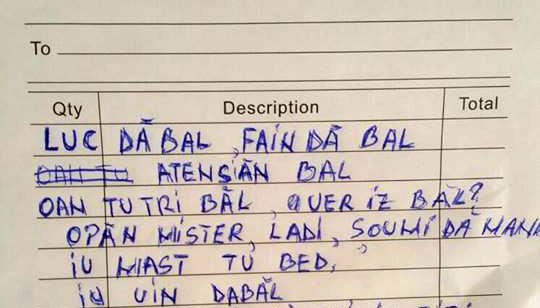 To
Qty Description Total
LUC DĂ BAL, FAIN DĂ BAL
ATENȘĂN BAL
OAN TU TRI BĂL, QUER IZ BĂL?
OPĂN MISTER, LADI, SOUMI DĂ MANI
IU MAST TU BED,
IU UIN DABĂL